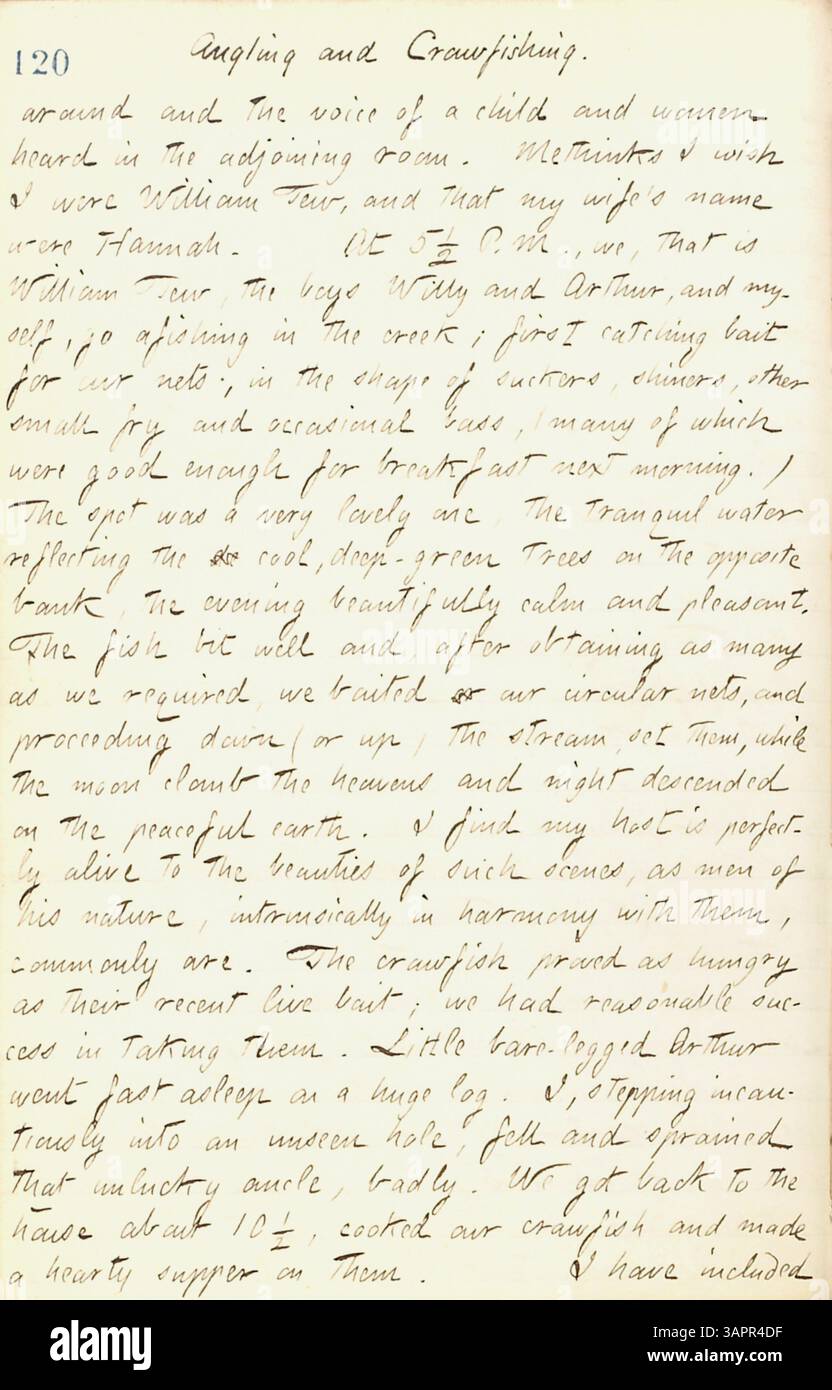 120
Angling and Crawfishing.
around and the voice of a child and women
heard in the adjoining room. Methinks I wish
I were William Tew, and that my wife's name
were Hannah. At 5 ½ P.M., we, that is
William Tew, the boys Willy and Arthur, and my-
self, go afishing in the creek; first catching bait
for our nets; in the shape of suckers, shiners, other
small fry and occasional bass, (many of which
were good enough for breakfast next morning.)
The spot was a very lovely one, the tranquil water
reflecting the cool, deep-green trees on the opposite
bank, the evening beautifully calm and pleasant.
The fish bit well and after obtaining as many
as we required, we baited our circular nets, and
proceeding down (or up) the stream, set them, while
the moon clomb the heavens and night descended
on the peaceful earth. I find my host is perfect-
ly alive to the beauties of such scenes, as men of
his nature, intrinsically in harmony with them,
commonly are. The crawfish proved as hungry
as their recent live bait; we had reasonable suc-
cess in taking them. Little bare-legged Arthur
went fast asleep on a huge log. I, stepping incau-
tiously into an unseen hole, fell and sprained
that unlucky ancle, badly. We got back to the
house about 10 ½, cooked our crawfish and made
a hearty supper on them. I have included
alamy
Image ID: 3APR4DF
www.alamy.com